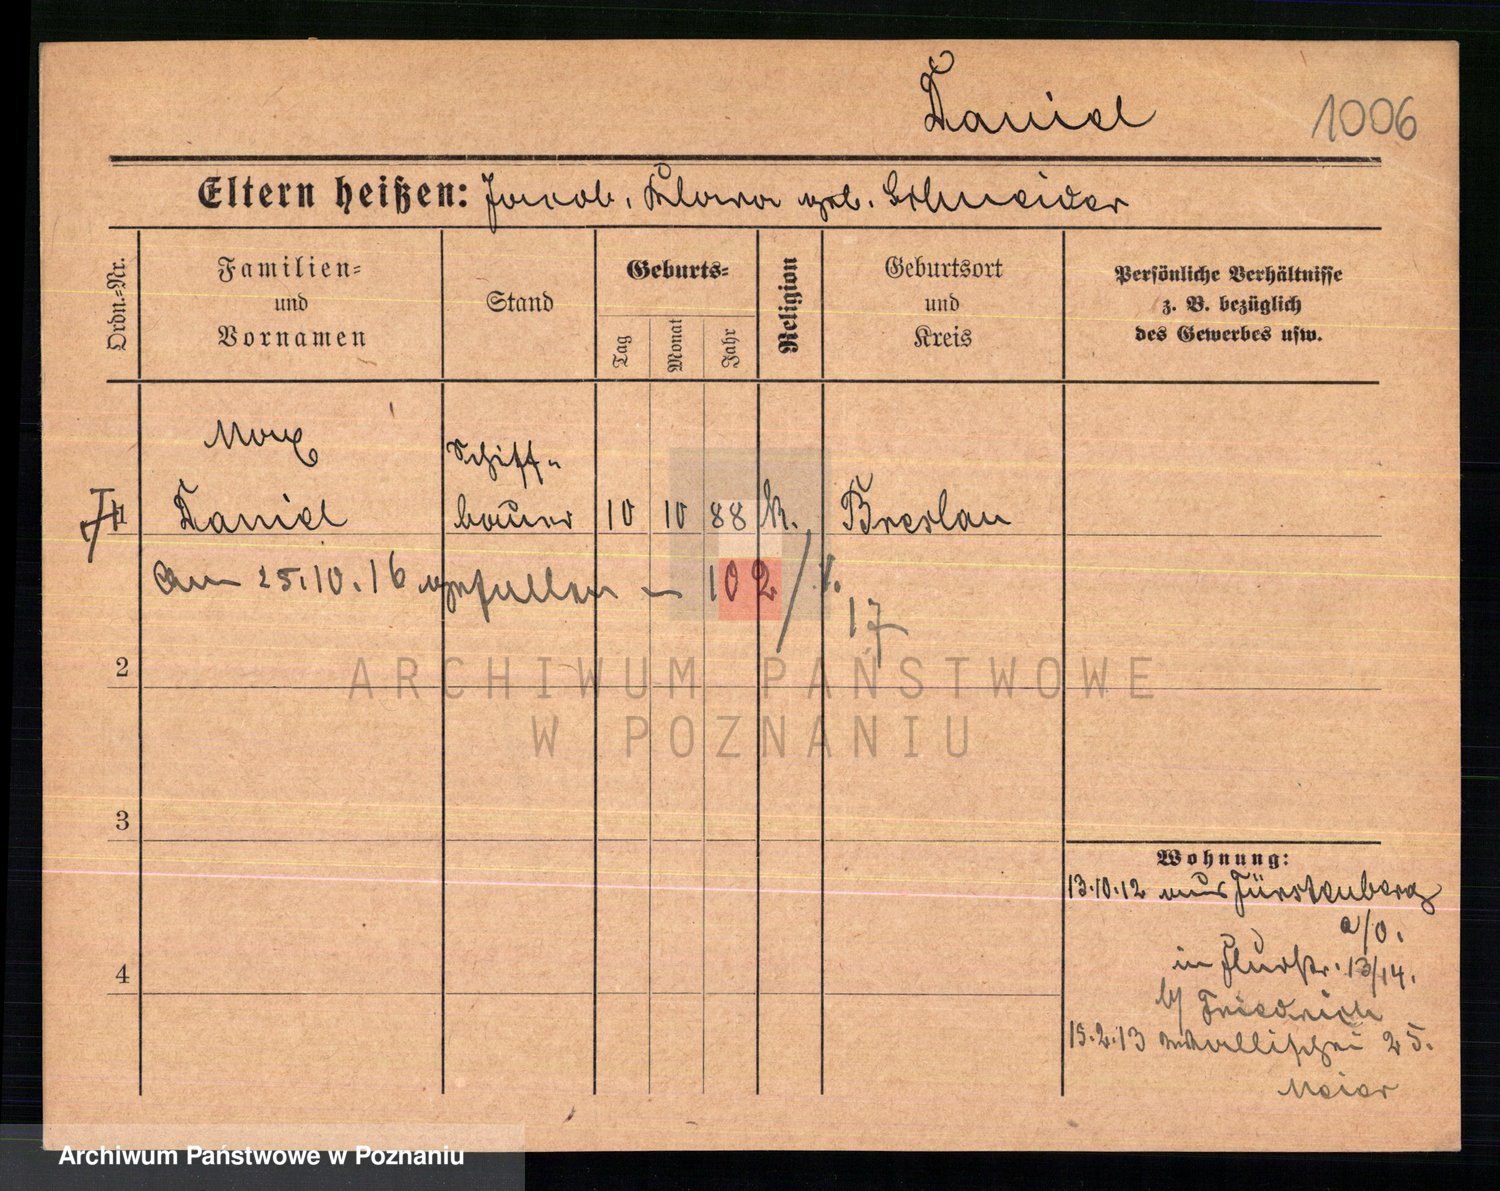 Daniel
1006
Eltern heißen: Jacob, Klara geb. Schneider
Ordn.-Nr.
Familien-
und
Vornamen
Stand
Geburts-
Tag
Monat
Jahr
Religion
Geburtsort
und
Kreis
Persönliche Verhältnisse
z. B. bezüglich
des Gewerbes usw.
Max
Schiff-
1 Daniel bauer 10 10 88 k. Breslau
am 25.10.16 gefallen 102/
17
2
ARCHIWUM PAŃSTWOWE
W POZNANIU
3
Wohnung:
13.10.12 aus Fürstenberg
a/O.
4
in Flurstr. 13/14.
b/ Friedrich
15.2.13 Wallischei 25.
Meier
Archiwum Państwowe w Poznaniu